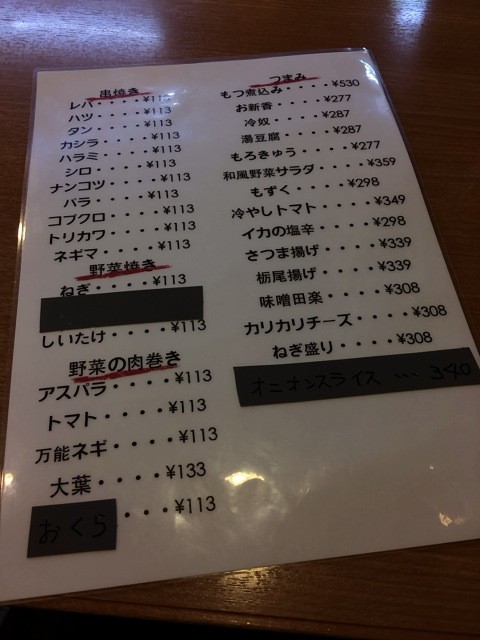 串焼き
レバ・・・・¥113
ハツ・・・・¥113
タン・・・・¥113
カシラ・・・・¥113
ハラミ・・・・¥113
シロ・・・・¥113
ナンコツ・・・・¥113
バラ・・・・¥113
コブクロ・・・・¥113
トリカワ・・・・¥113
ネギマ・・・・¥113
野菜焼き
ねぎ・・・・¥113
しいたけ・・・・¥113
野菜の肉巻き
アスパラ・・・・¥113
トマト・・・・¥113
万能ネギ・・・・¥113
大葉・・・・¥133
おくら・・・¥113
つまみ
もつ煮込み・・・・¥530
お新香・・・・¥277
冷奴・・・・¥287
湯豆腐・・・・¥287
もろきゅう・・・・¥277
和風野菜サラダ・・・・¥359
もずく・・・・¥298
冷やしトマト・・・・¥349
イカの塩辛・・・・¥298
さつま揚げ・・・・¥339
栃尾揚げ・・・・¥339
味噌田楽・・・・¥308
カリカリチーズ・・・・¥308
ねぎ盛り・・・・¥308
オニオンスライス・・・340